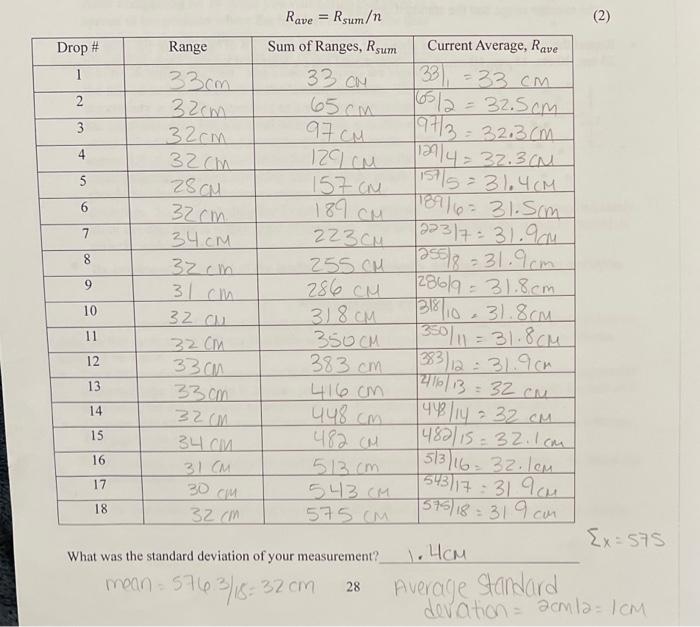 R_ave = R_sum/n (2)
Drop # Range Sum of Ranges, R_sum Current Average, R_ave
1 33cm 33 CM 33/1 = 33 cm
2 32cm 65cm 65/2 = 32.5cm
3 32cm 97 CM 97/3 = 32.3cm
4 32cm 129 CM 129/4 = 32.3CM
5 28CM 157 CM 157/5 = 31.4CM
6 32cm 189 CM 189/6 = 31.5cm
7 34CM 223CM 223/7 = 31.9CM
8 32cm 255 CM 255/8 = 31.9cm
9 31 cm 286 CM 286/9 = 31.8cm
10 32 CM 318CM 318/10 = 31.8CM
11 32CM 350CM 350/11 = 31.8CM
12 33CM 383 cm 383/12 = 31.9cm
13 33cm 416 cm 416/13 = 32 CM
14 32CM 448 cm 448/14 = 32 CM
15 34CM 482 CM 482/15 = 32.1cm
16 31 CM 513cm 513/16 = 32.1CM
17 30 CM 543 CM 543/17 = 31.9CM
18 32CM 575 CM 575/18 = 31.9 cm
Σx = 575
What was the standard deviation of your measurement? 1.4CM
mean = 576.3/18 = 32cm 28 Average Standard
devation = 2cm/2 = 1CM